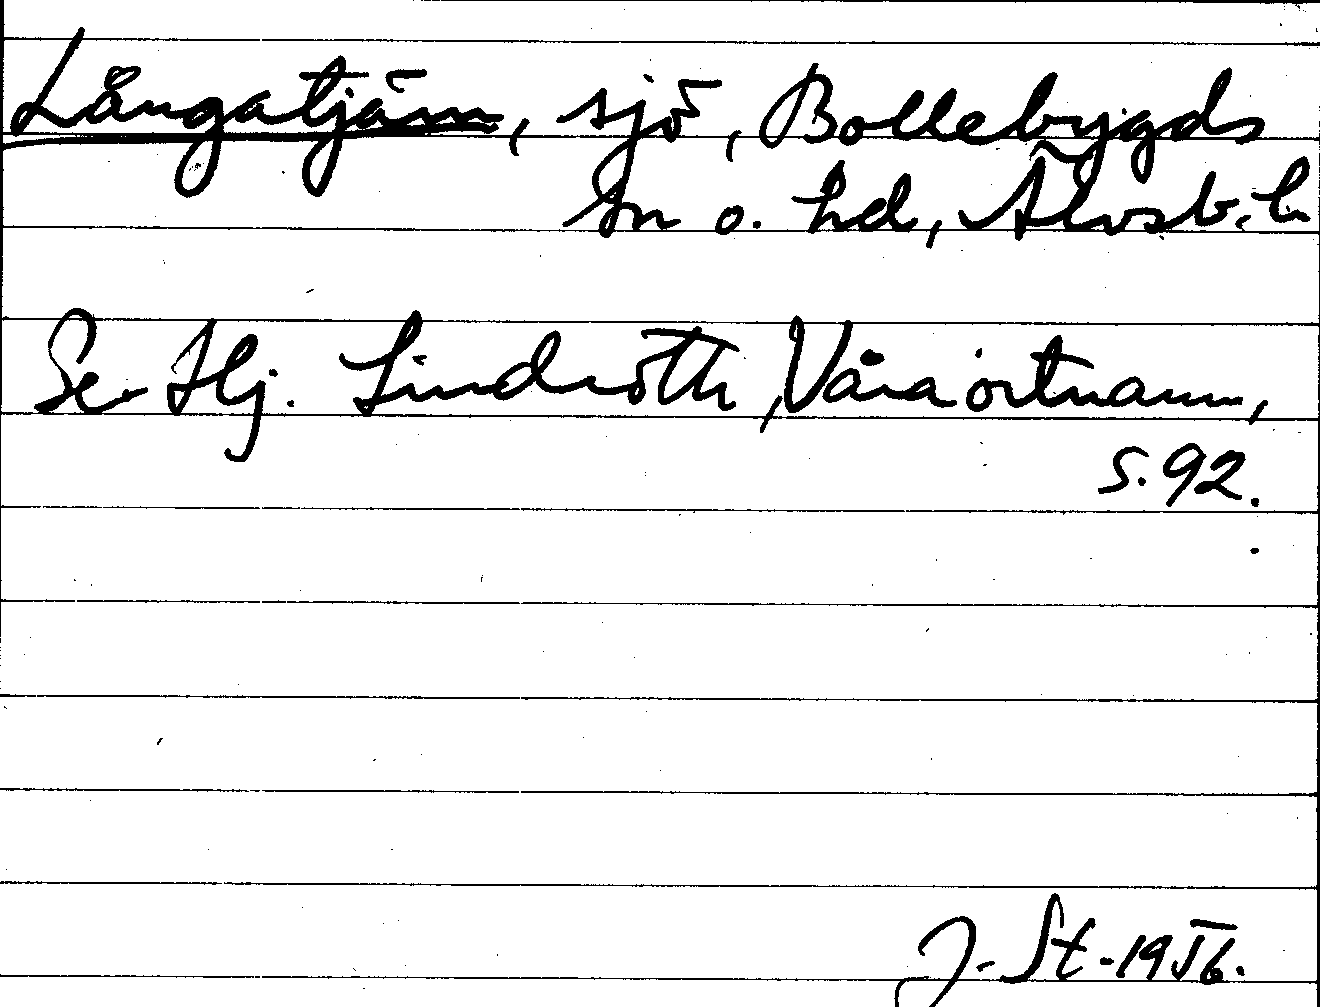 Långatjärn, sjö, Bollebygds
sn o. hd, Älvsb. l.
Se Hj. Lindroth, Våra ortnamn,
s. 92.
J. St. 1956.